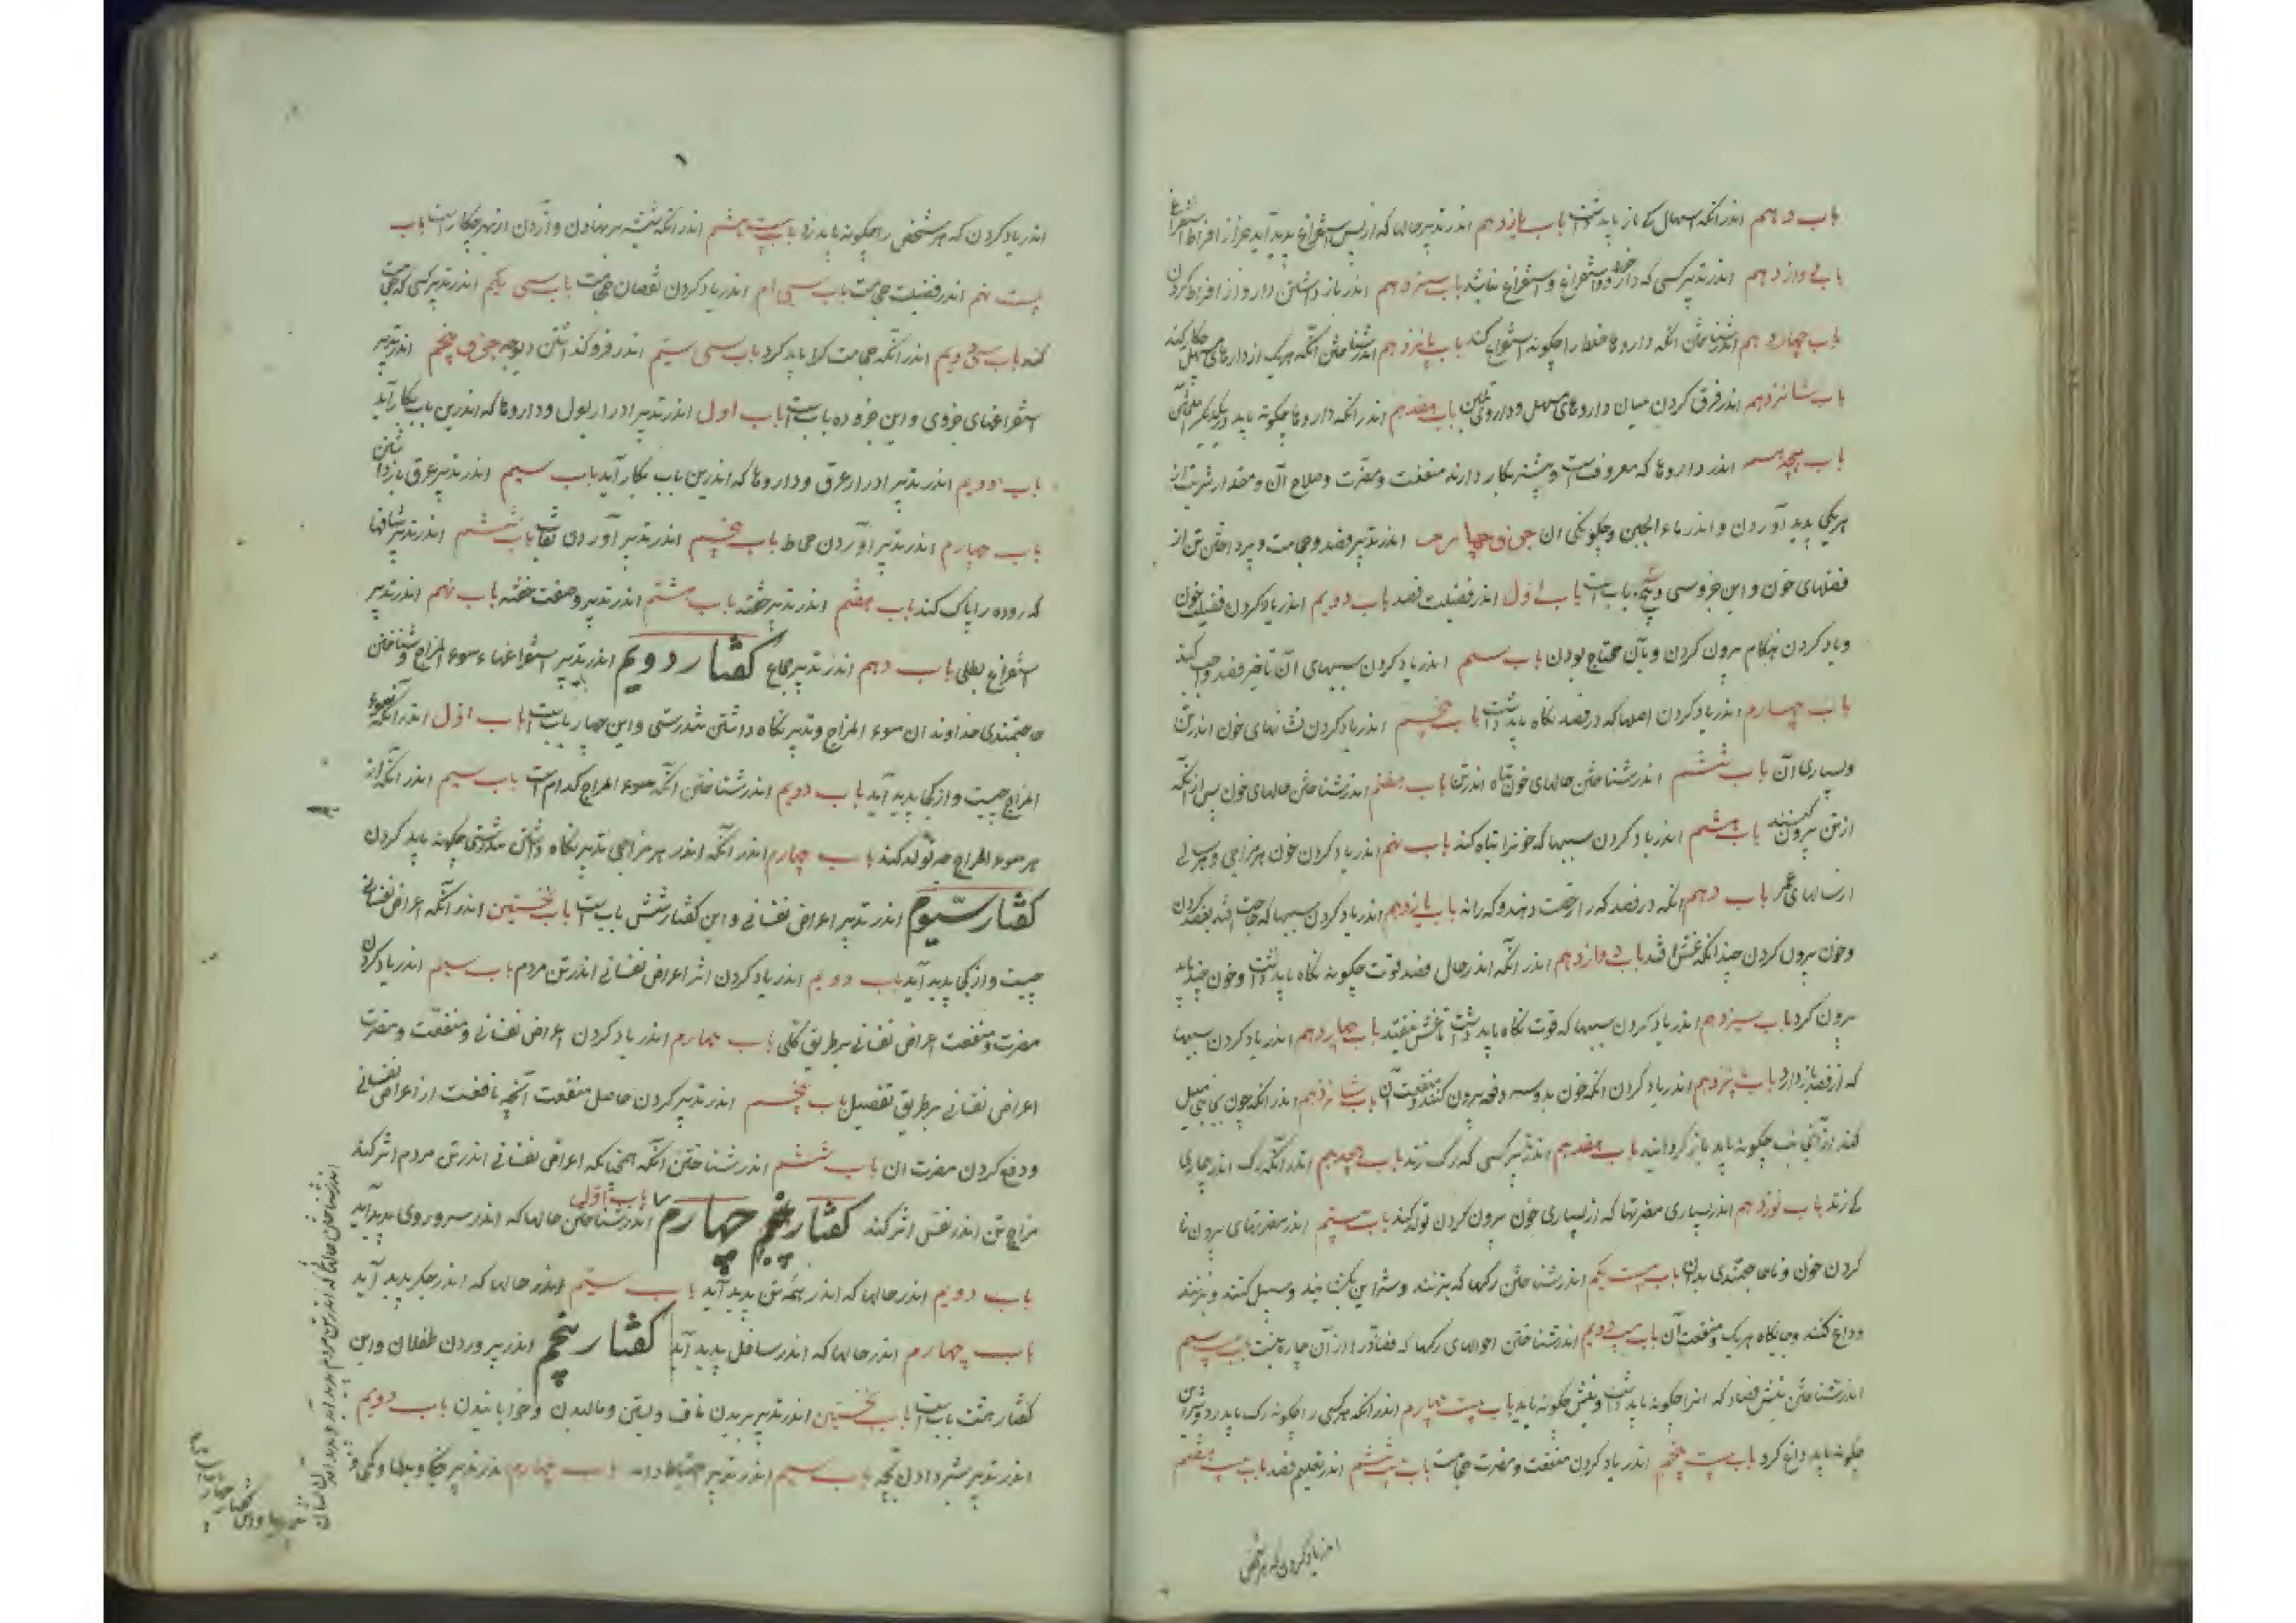 باب دهم اندر آنکه اسهال کی باز باید داشت باب یازدهم اندر تدبیر حالها که از پس استفراغ پدید آید جز از افراط استفراغ
باب دوازدهم اندر تدبیر کسی که دارو خورد و استفراغ نباشد باب سیزدهم اندر باز داشتن دارو از افراط کردن
باب چهاردهم اندر شناختن آنکه داروها خلط را چگونه استفراغ کند باب پانزدهم اندر شناختن آنکه هر یک از داروهای مسهل چکار کند
باب شانزدهم اندر فرق کردن میان داروهای مسهل و داروی ملین باب هفدهم اندر آنکه داروها چگونه باید
باب هجدهم اندر داروها که معروفست و بیشتر بکار دارند منفعت و مضرت و صلاح آن و مقدار شربت از
هر یکی پدید آوردن و اندر ماء الجبن و چگونگی آن جزو چهارم اندر تدبیر فصد و حجامت و پرداختن تن از
فضلهای خون و این جزو سی و پنج باب است باب اول اندر فضیلت فصد باب دویم اندر یاد کردن فضیلت خون
و یاد کردن هنگام بیرون کردن و بآن محتاج بودن باب سیم اندر یاد کردن سببهای آن تاخیر فصد واجب کند
باب چهارم اندر یاد کردن اصلها که در فصد نگاه باید داشت باب پنجم اندر یاد کردن نشانهای خون اندر تن
و بسیاری آن باب ششم اندر شناختن حالهای خون تباه اندر تن باب هفتم اندر شناختن حالهای خون پس از آنکه
از تن بیرون کنند باب هشتم اندر یاد کردن سببها که خونرا تباه کند باب نهم اندر یاد کردن خون هر مزاجی و هر سالی
از سالهای عمر باب دهم آنکه در فصد که را رخصت دهند و که را نه باب یازدهم اندر یاد کردن سببها که حاجت افتد بفصد کردن
و خون بیرون کردن چندانکه غشی افتد باب دوازدهم اندر آنکه اندر حال فصد قوت چگونه نگاه باید داشت و خون چند باید
بیرون کرد باب سیزدهم اندر یاد کردن سببها که قوت نگاه باید داشت تا غشی نیفتد باب چهاردهم اندر یاد کردن سببها
که از فصد باز دارد باب پنزدهم اندر یاد کردن آنکه خون بدو سه دفعه بیرون کنند و منفعت آن باب شانزدهم اندر آنکه چون بجانبی میل
کند از آن جانب چگونه باید باز گردانید باب هفدهم اندر تدبیر کسی که رگ زند باب هجدهم اندر آنکه رگ اندر بیماری
که زند باب نوزدهم اندر بسیاری مضرتها که از بسیاری خون بیرون کردن تولد کند باب بیستم اندر مضرتهای بیرون نا
کردن خون و با حاجتمندی بدان باب بیست یکم اندر شناختن رگها که بزنند و شراین بگشایند و سل کنند و بزنند
و داغ کنند و جایگاه هر یک و منفعت آن باب بیست دویم اندر شناختن احوالهای رگها که فصاد را از آن چاره نیست باب بیست سیم
اندر شناختن نیش فصاد که آنرا چگونه باید داشت و نیش چگونه باید باب بیست چهارم اندر آنکه هر کسی را چگونه رگ باید زد و شریان
چگونه باید داغ کرد باب بیست پنجم اندر یاد کردن منفعت و مضرت حجامت باب بیست ششم اندر تعلیم فصد باب بیست هفتم
اندر یاد کردن که هر شخص
اندر یاد کردن که هر شخص را چگونه باید زد باب بیست هشتم اندر آنکه شیشه بر نهادن و آزدن از بهر چکار است باب
بیست نهم اندر فضیلت حجامت باب سی ام اندر یاد کردن نقصان حجامت باب سی یکم اندر تدبیر کسی که حجامت
کند باب سی و دویم اندر آنکه حجامت کرا باید کرد باب سی سیم اندر فرو گذاشتن دیوچه جزو پنجم اندر تدبیر
استفراغهای جزوی و این جزو ده باب است باب اول اندر تدبیر ادرار بول و داروها که اندرین باب بکار آید
باب دویم اندر تدبیر ادرار عرق و داروها که اندرین باب بکار آید باب سیم اندر تدبیر عرق باز داشتن
باب چهارم اندر تدبیر آوردن مخاط باب پنجم اندر تدبیر آوردن نفث باب ششم اندر تدبیر شیافها
که روده را پاک کند باب هفتم اندر تدبیر حقنه باب هشتم اندر تدبیر و صفت حقنه باب نهم اندر تدبیر
استفراغ بطلی باب دهم اندر تدبیر جماع گفتار دویم اندر تدبیر استفراغهاء سوء المزاج و شناختن
حاجتمندی خداوندان سوء المزاج و تدبیر نگاه داشتن تندرستی و این چهار باب است باب اول اندر آنکه سوء
المزاج چیست و از کجا پدید آید باب دویم اندر شناختن آنکه سوء المزاج کدام است باب سیم اندر آنکه از
هر سوء المزاج چه تولد کند باب چهارم اندر آنکه اندر هر مزاجی تدبیر نگاه داشتن تندرستی چگونه باید کردن
گفتار سیوم اندر تدبیر اعراض نفسانی و این گفتار شش باب است باب نخستین اندر آنکه اعراض نفسانی
چیست و از کجا پدید آید باب دویم اندر یاد کردن اثر اعراض نفسانی اندر تن مردم باب سیم اندر یاد کردن
مضرت و منفعت اعراض نفسانی بر طریق کلی باب چهارم اندر یاد کردن اعراض نفسانی و منفعت و مضرت
اعراض نفسانی بر طریق تفصیل باب پنجم اندر تدبیر کردن حاصل منفعت آنچه نافعست از اعراض نفسانی
و دفع کردن مضرت آن باب ششم اندر شناختن آنکه همچنانکه اعراض نفسانی اندر تن مردم اثر کند
مزاج تن اندر نفس اثر کند گفتار چهارم باب اول اندر شناختن حالها که اندر سر و روی پدید آید
باب دویم اندر حالها که اندر همه تن پدید آید باب سیم اندر حالها که اندر جگر پدید آید
باب چهارم اندر حالها که اندر سافل پدید آید گفتار پنجم اندر پروردن طفلان و این
گفتار هشت باب است باب نخستین اندر تدبیر بریدن ناف و بستن و مالیدن و خوابانیدن باب دویم
اندر تدبیر شیر دادن بچه باب سیم اندر تدبیر احتیاط دایه باب چهارم اندر تدبیر
اندر شناختن حالها که اندر تن مردم پدید آید و